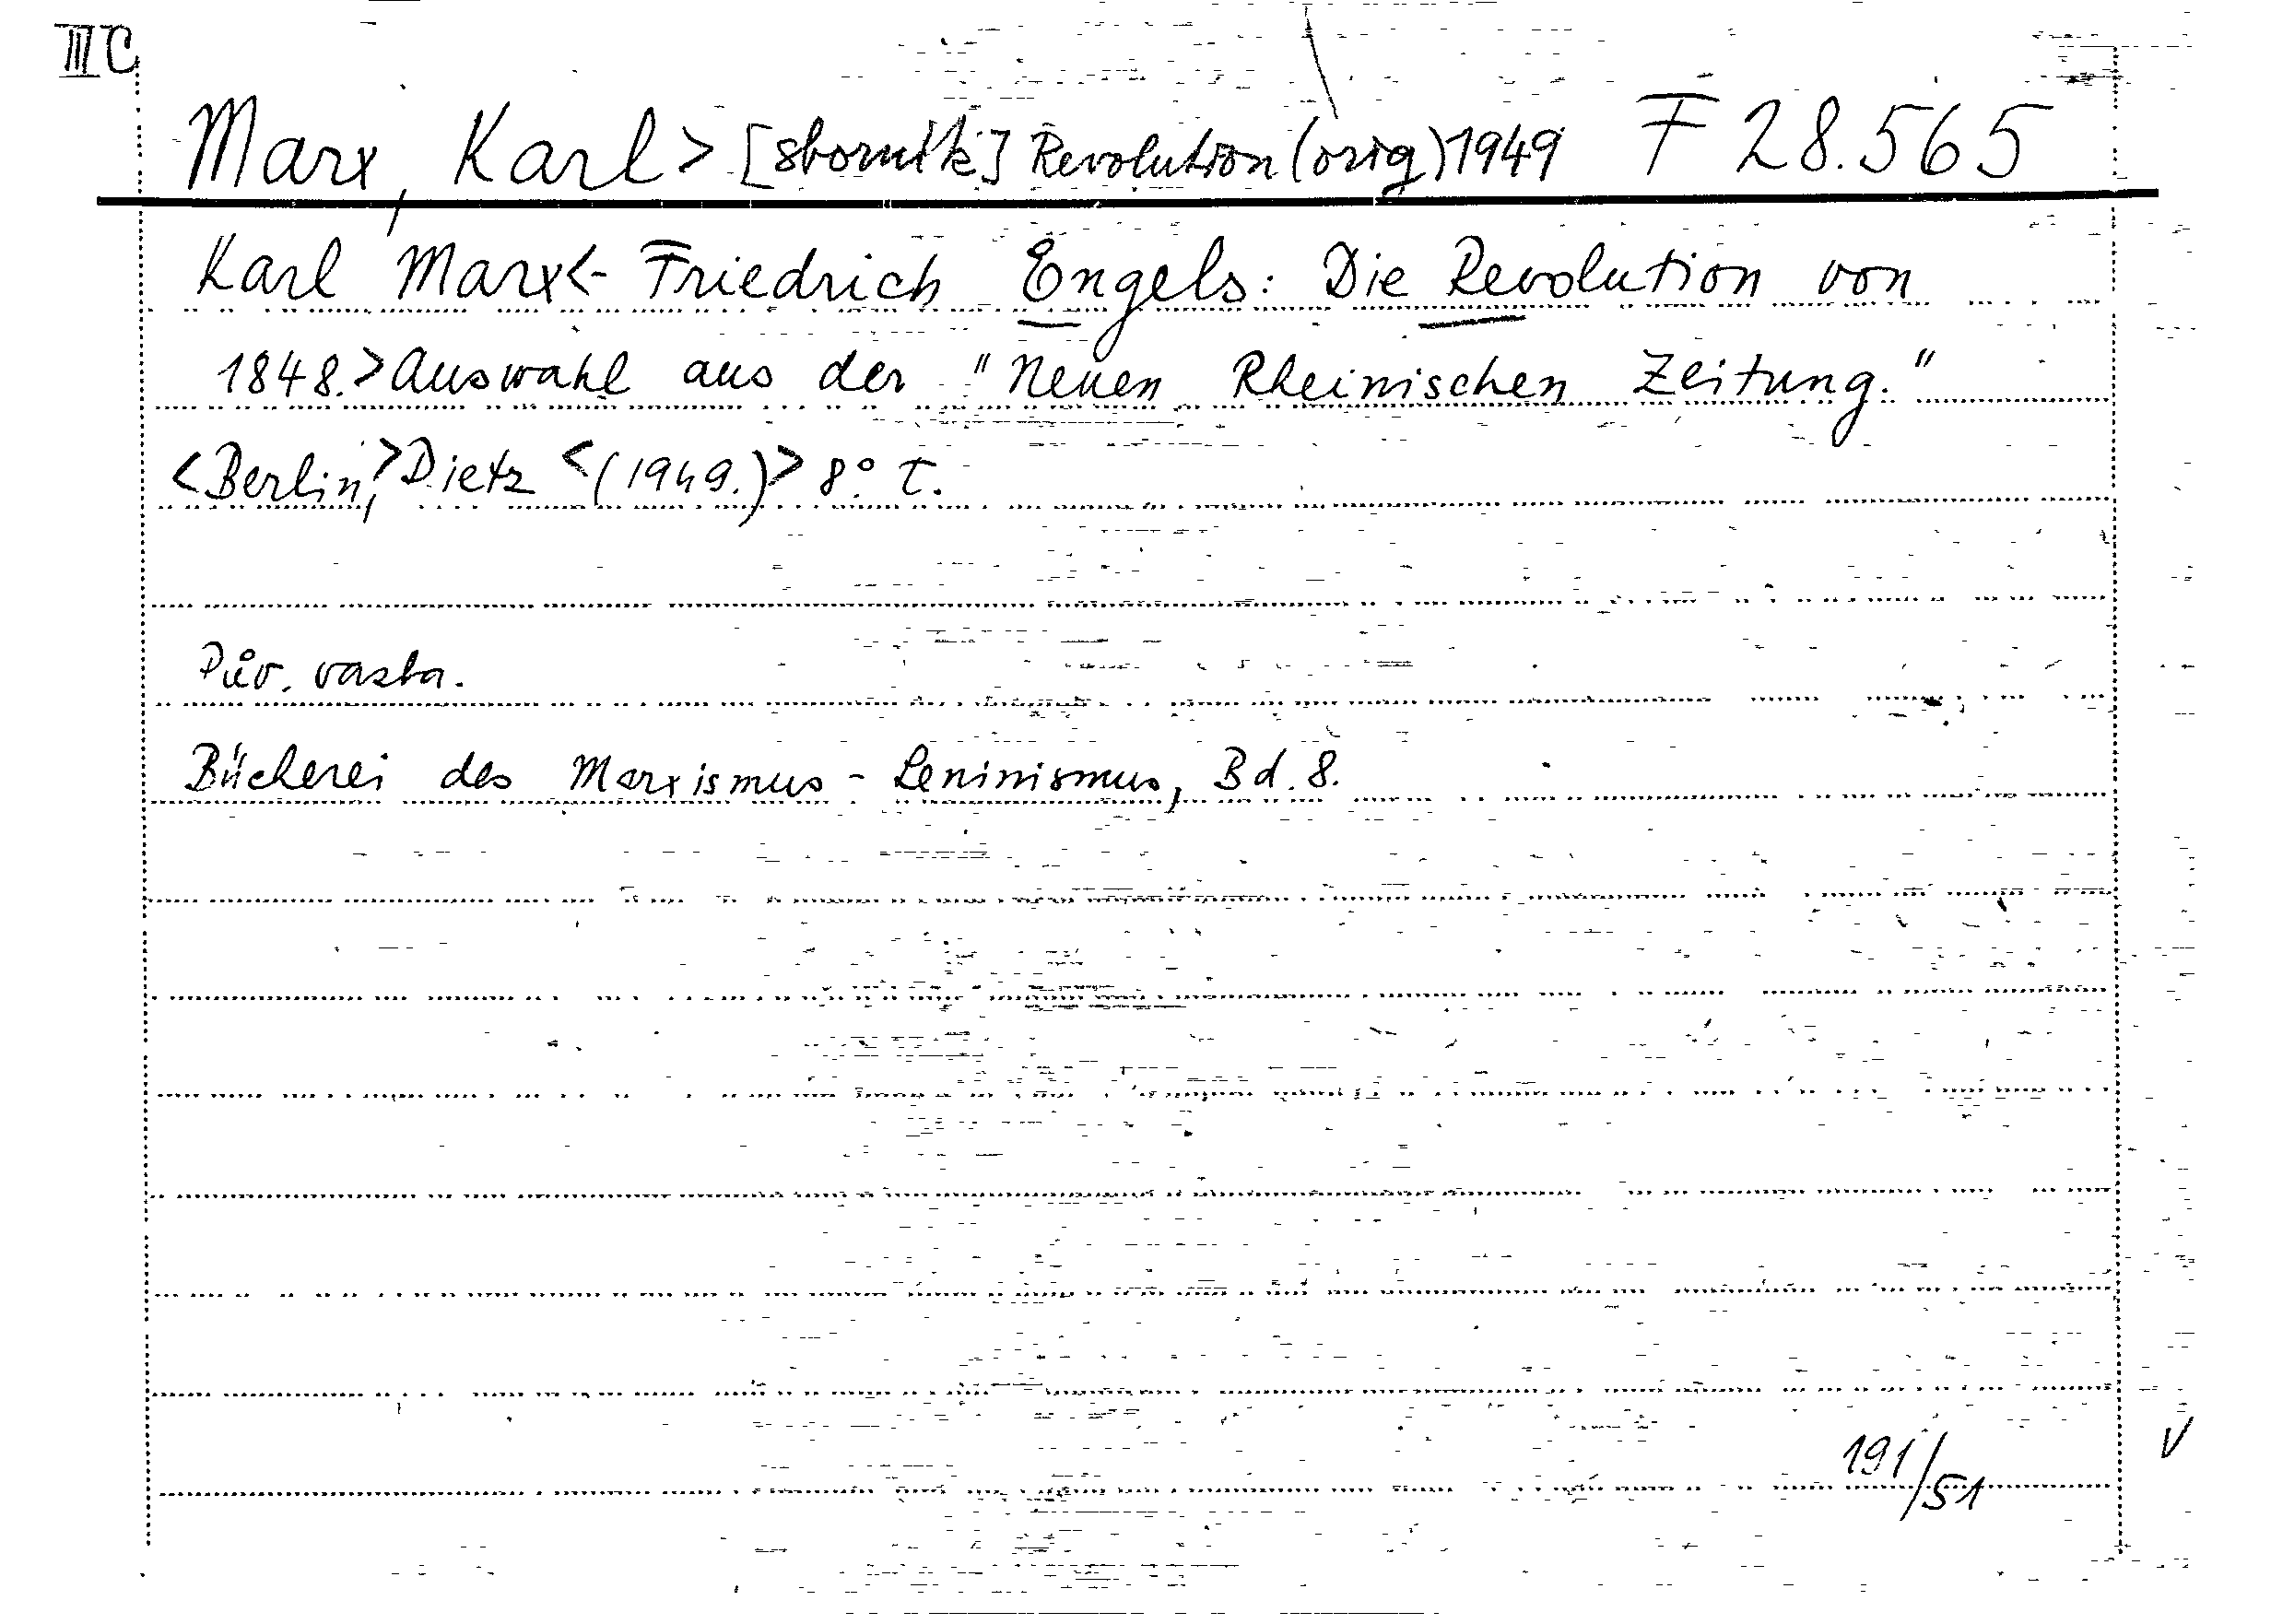 III C
Marx, Karl > [sborník] Revolution (orig) 1949 F 28.565
Karl Marx <- Friedrich Engels: Die Revolution von
1848. > Auswahl aus der "Neuen Rheinischen Zeitung."
<Berlin,> Dietz <(1949.)> 8°. T.
Pův. vazba.
Bücherei des Marxismus - Leninismus, Bd. 8.
191/51 V